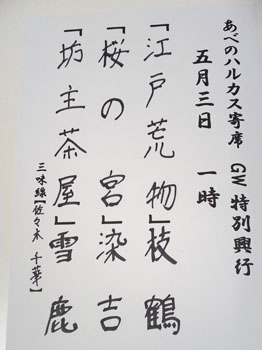 あべのハルカス寄席 GW 特別興行
五月三日 一時
「江戸荒物」枝鶴
「桜の宮」染吉
「坊主茶屋」雪鹿
三味線【佐々木 千華】